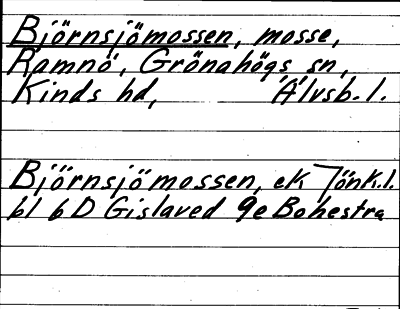 Björnsjömossen, mosse,
Ramnö, Grönahögs sn,
Kinds hd, Älvsb. l.
Björnsjömossen, ek Jönk.l.
bl 6D Gislaved 9e Bohestra